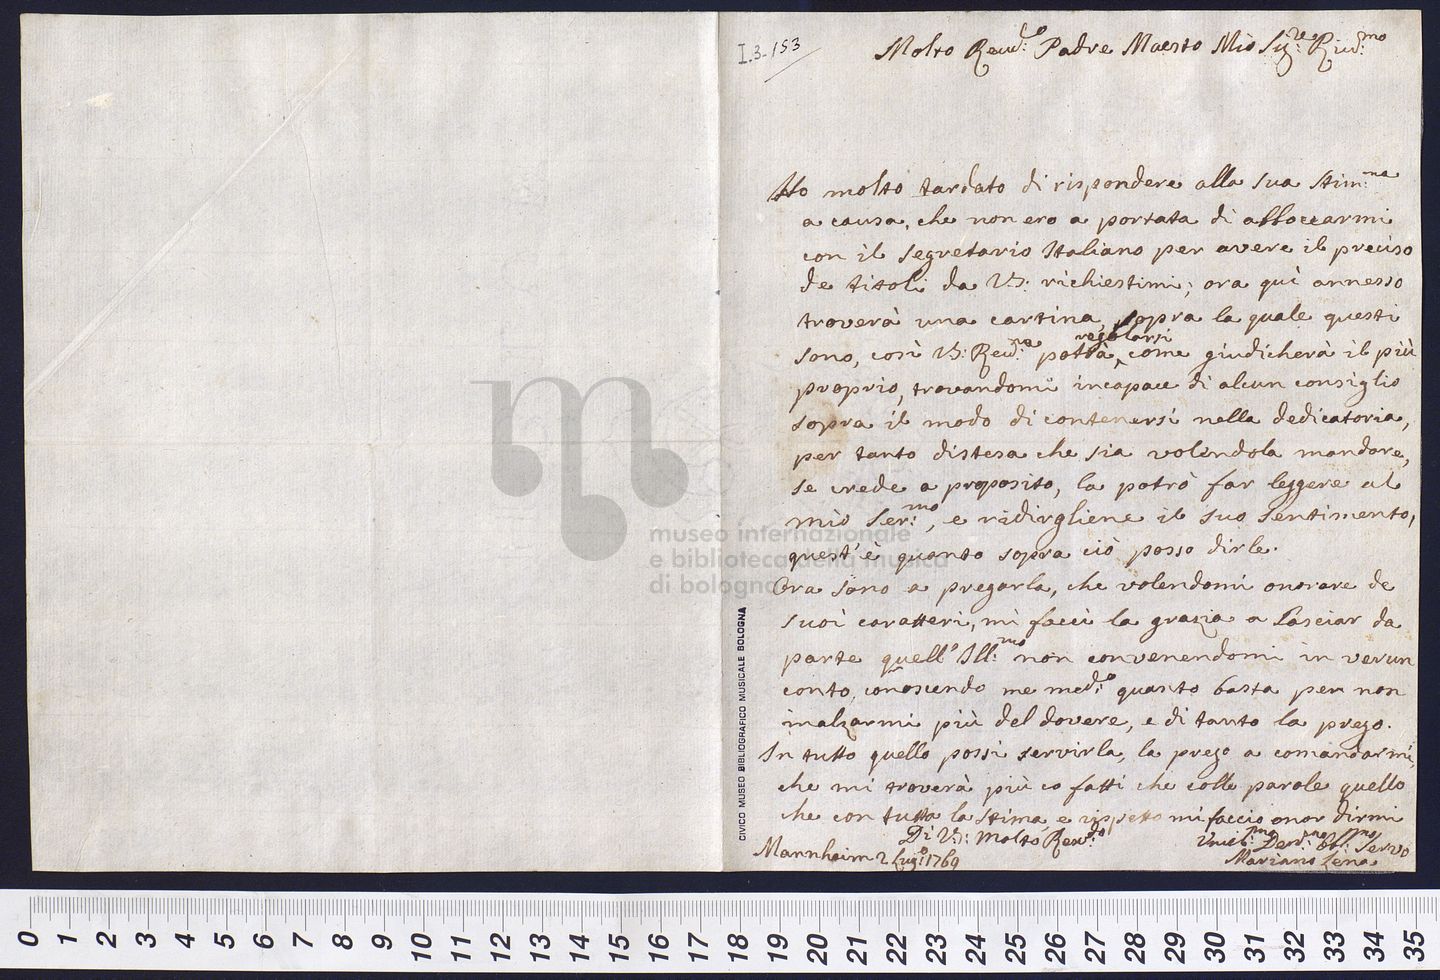 I.3-153
Molto Reud:do Padre Maestro Mio Sig:re Riud:mo
Ho molto tardato di rispondere alla sua stim:ma
a causa, che non ero a portata di abboccarmi
con il segretario Italiano per avere il preciso
de titoli da V.S: richiestimi; ora quì annesso
troverà una cartina, sopra la quale questi
sono, così V: Reud:ma potrà, regolarsi come giudicherà il più
proprio, trovandomi incapace di alcun consiglio
sopra il modo di contenersi nella dedicatoria,
per tanto distesa che sia volendola mandare,
se crede a proposito, la potrò far leggere al
mio Ser:mo, e ridirgliene il suo sentimento,
quest'è quanto sopra ciò posso dirle.
Ora sono a pregarla, che volendomi onorare de
suoi caratteri, mi facci la grazia a lasciar da
parte quell'Ill:mo non convenendomi in verun
conto, conoscendo me med:o quanto basta per non
inalzarmi più del dovere, e di tanto la prego.
In tutto quello possi servirla, la prego a comandarmi,
che mi troverà più co fatti che colle parole quello
che con tutta la stima, e rispetto mi faccio onor dirmi
Di V.S: Molto Reud:o
Mannheim 2 Lug:o 1769
Umil:mo Dev:mo Obb:mo Servo
Mariano Lena
CIVICO MUSEO BIBLIOGRAFICO MUSICALE BOLOGNA
museo internazionale
e biblioteca della musica
di bologna
0 1 2 3 4 5 6 7 8 9 10 11 12 13 14 15 16 17 18 19 20 21 22 23 24 25 26 27 28 29 30 31 32 33 34 35